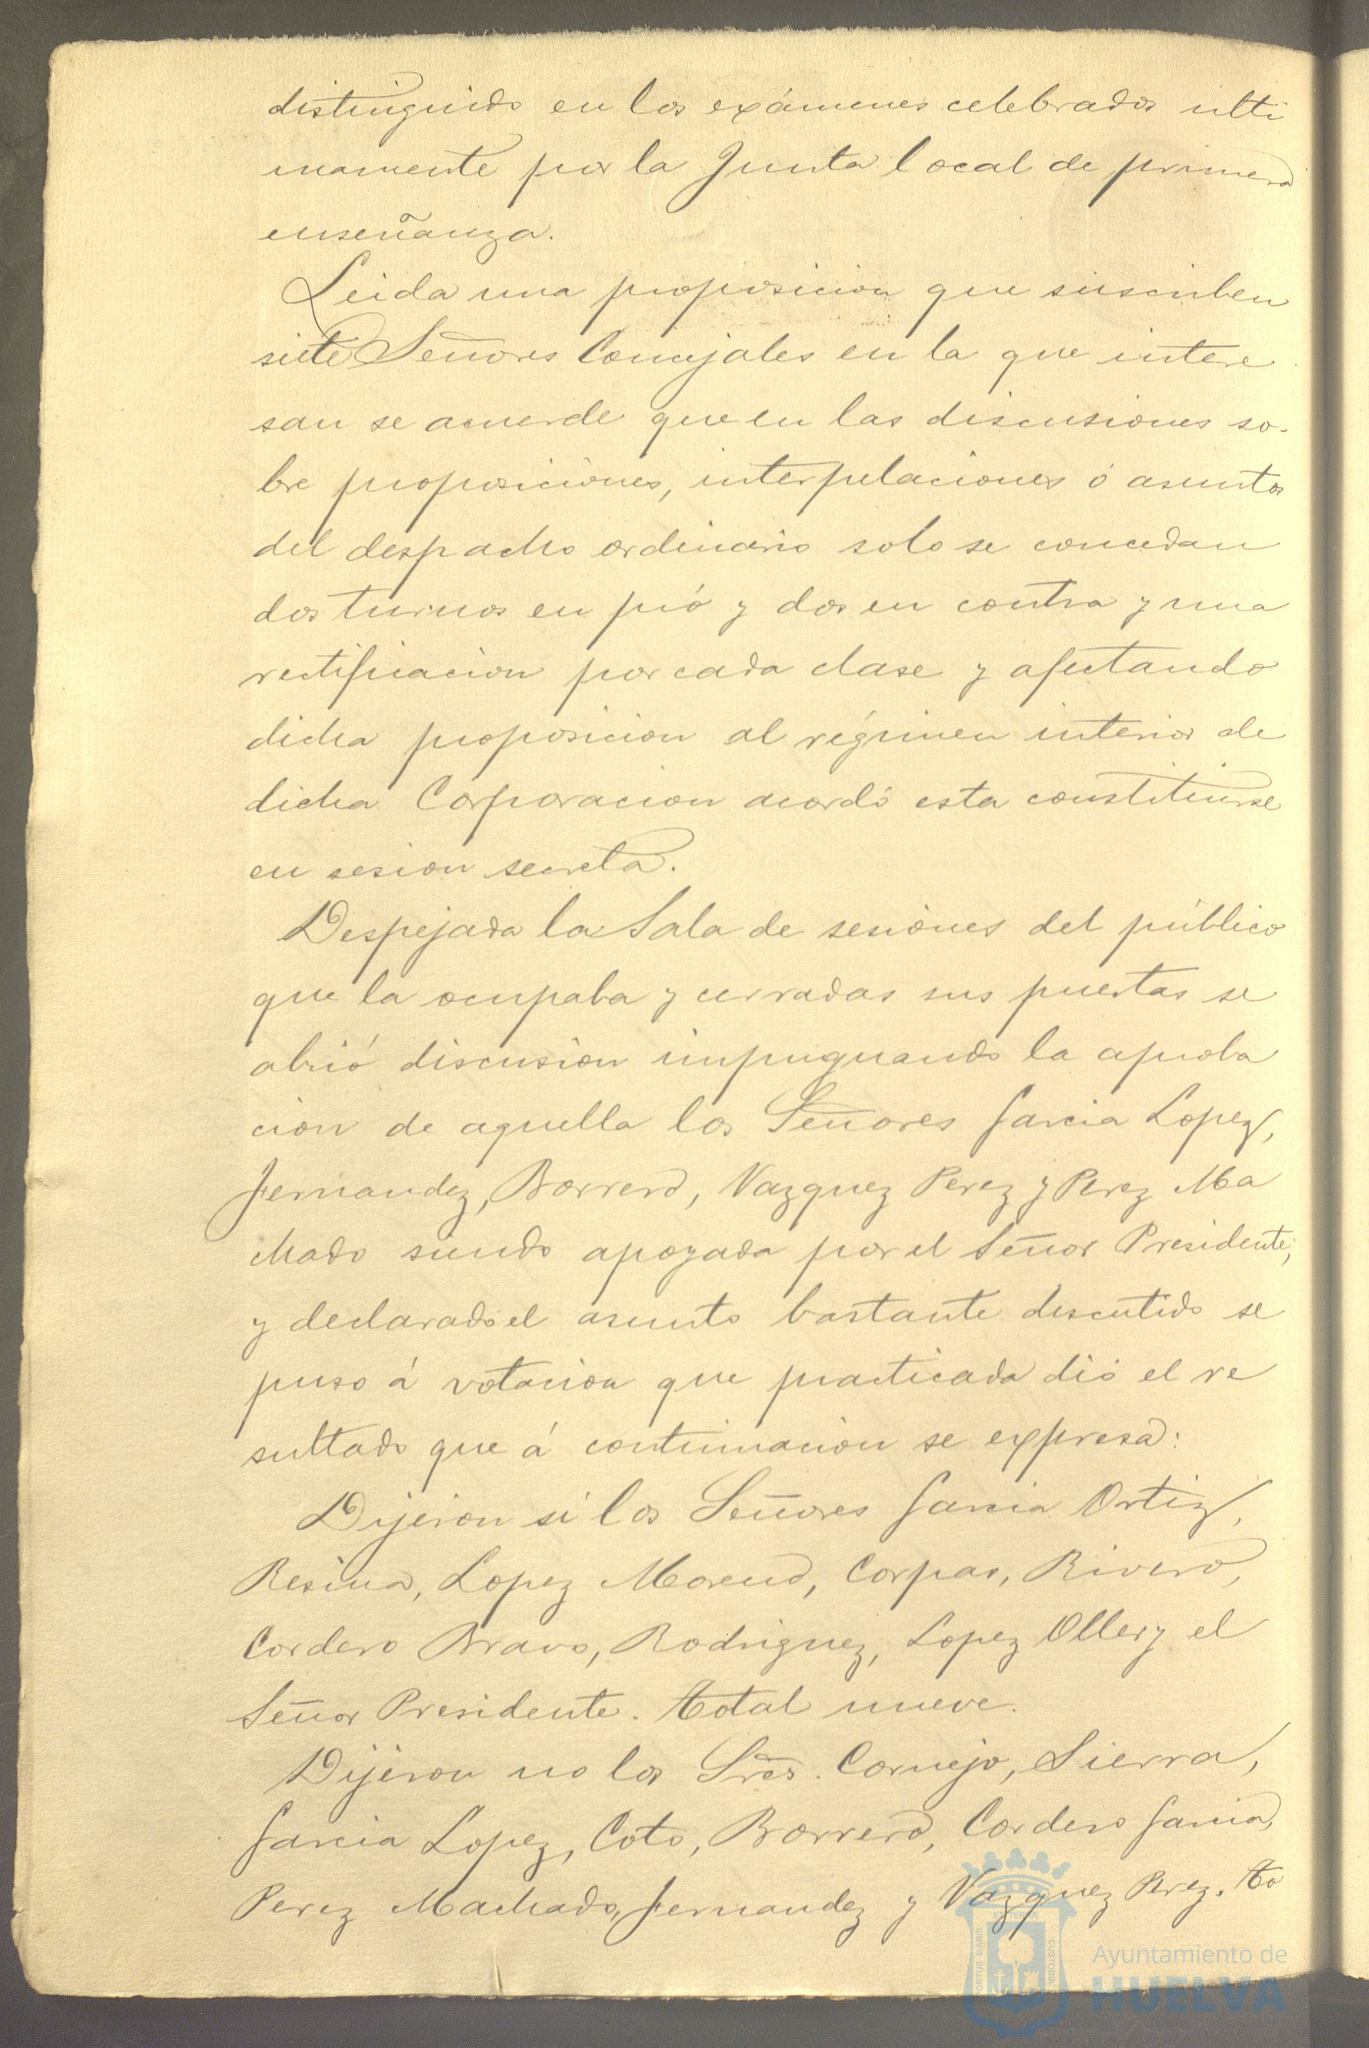 distinguido en los exámenes celebrados ulti
mamente por la Junta local de primera
enseñanza.
Leida una proposicion que suscriben
siete Señores Concejales en la que intere
san se acuerde que en las discusiones so-
bre proposiciones, interpelaciones ó asuntos
del despacho ordinario solo se concedan
dos turnos en pró y dos en contra y una
rectificacion por cada clase y afectando
dicha proposicion al régimen interior de
dicha Corporacion acordó esta constituirse
en sesion secreta.
Despejada la Sala de sesiones del público
que la ocupaba y cerradas sus puertas se
abrió discusion impugnando la aproba
cion de aquella los Señores Garcia Lopez,
Fernandez, Borrero, Vazquez Perez y Perez Ma
chado siendo apoyada por el Señor Presidente,
y declarado el asunto bastante discutido se
puso á votacion que practicada dió el re
sultado que á continuacion se expresa:
Dijeron si los Señores Garcia Ortiz,
Resina, Lopez Moreno, Corpas, Rivero,
Cordero Bravo, Rodriguez, Lopez Oller y el
Señor Presidente. Total nueve.
Dijeron no los Sres. Cornejo, Sierra,
Garcia Lopez, Coto, Borrero, Cordero Garcia,
Perez Machado, Fernandez y Vazquez Perez. To
Ayuntamiento de
HUELVA